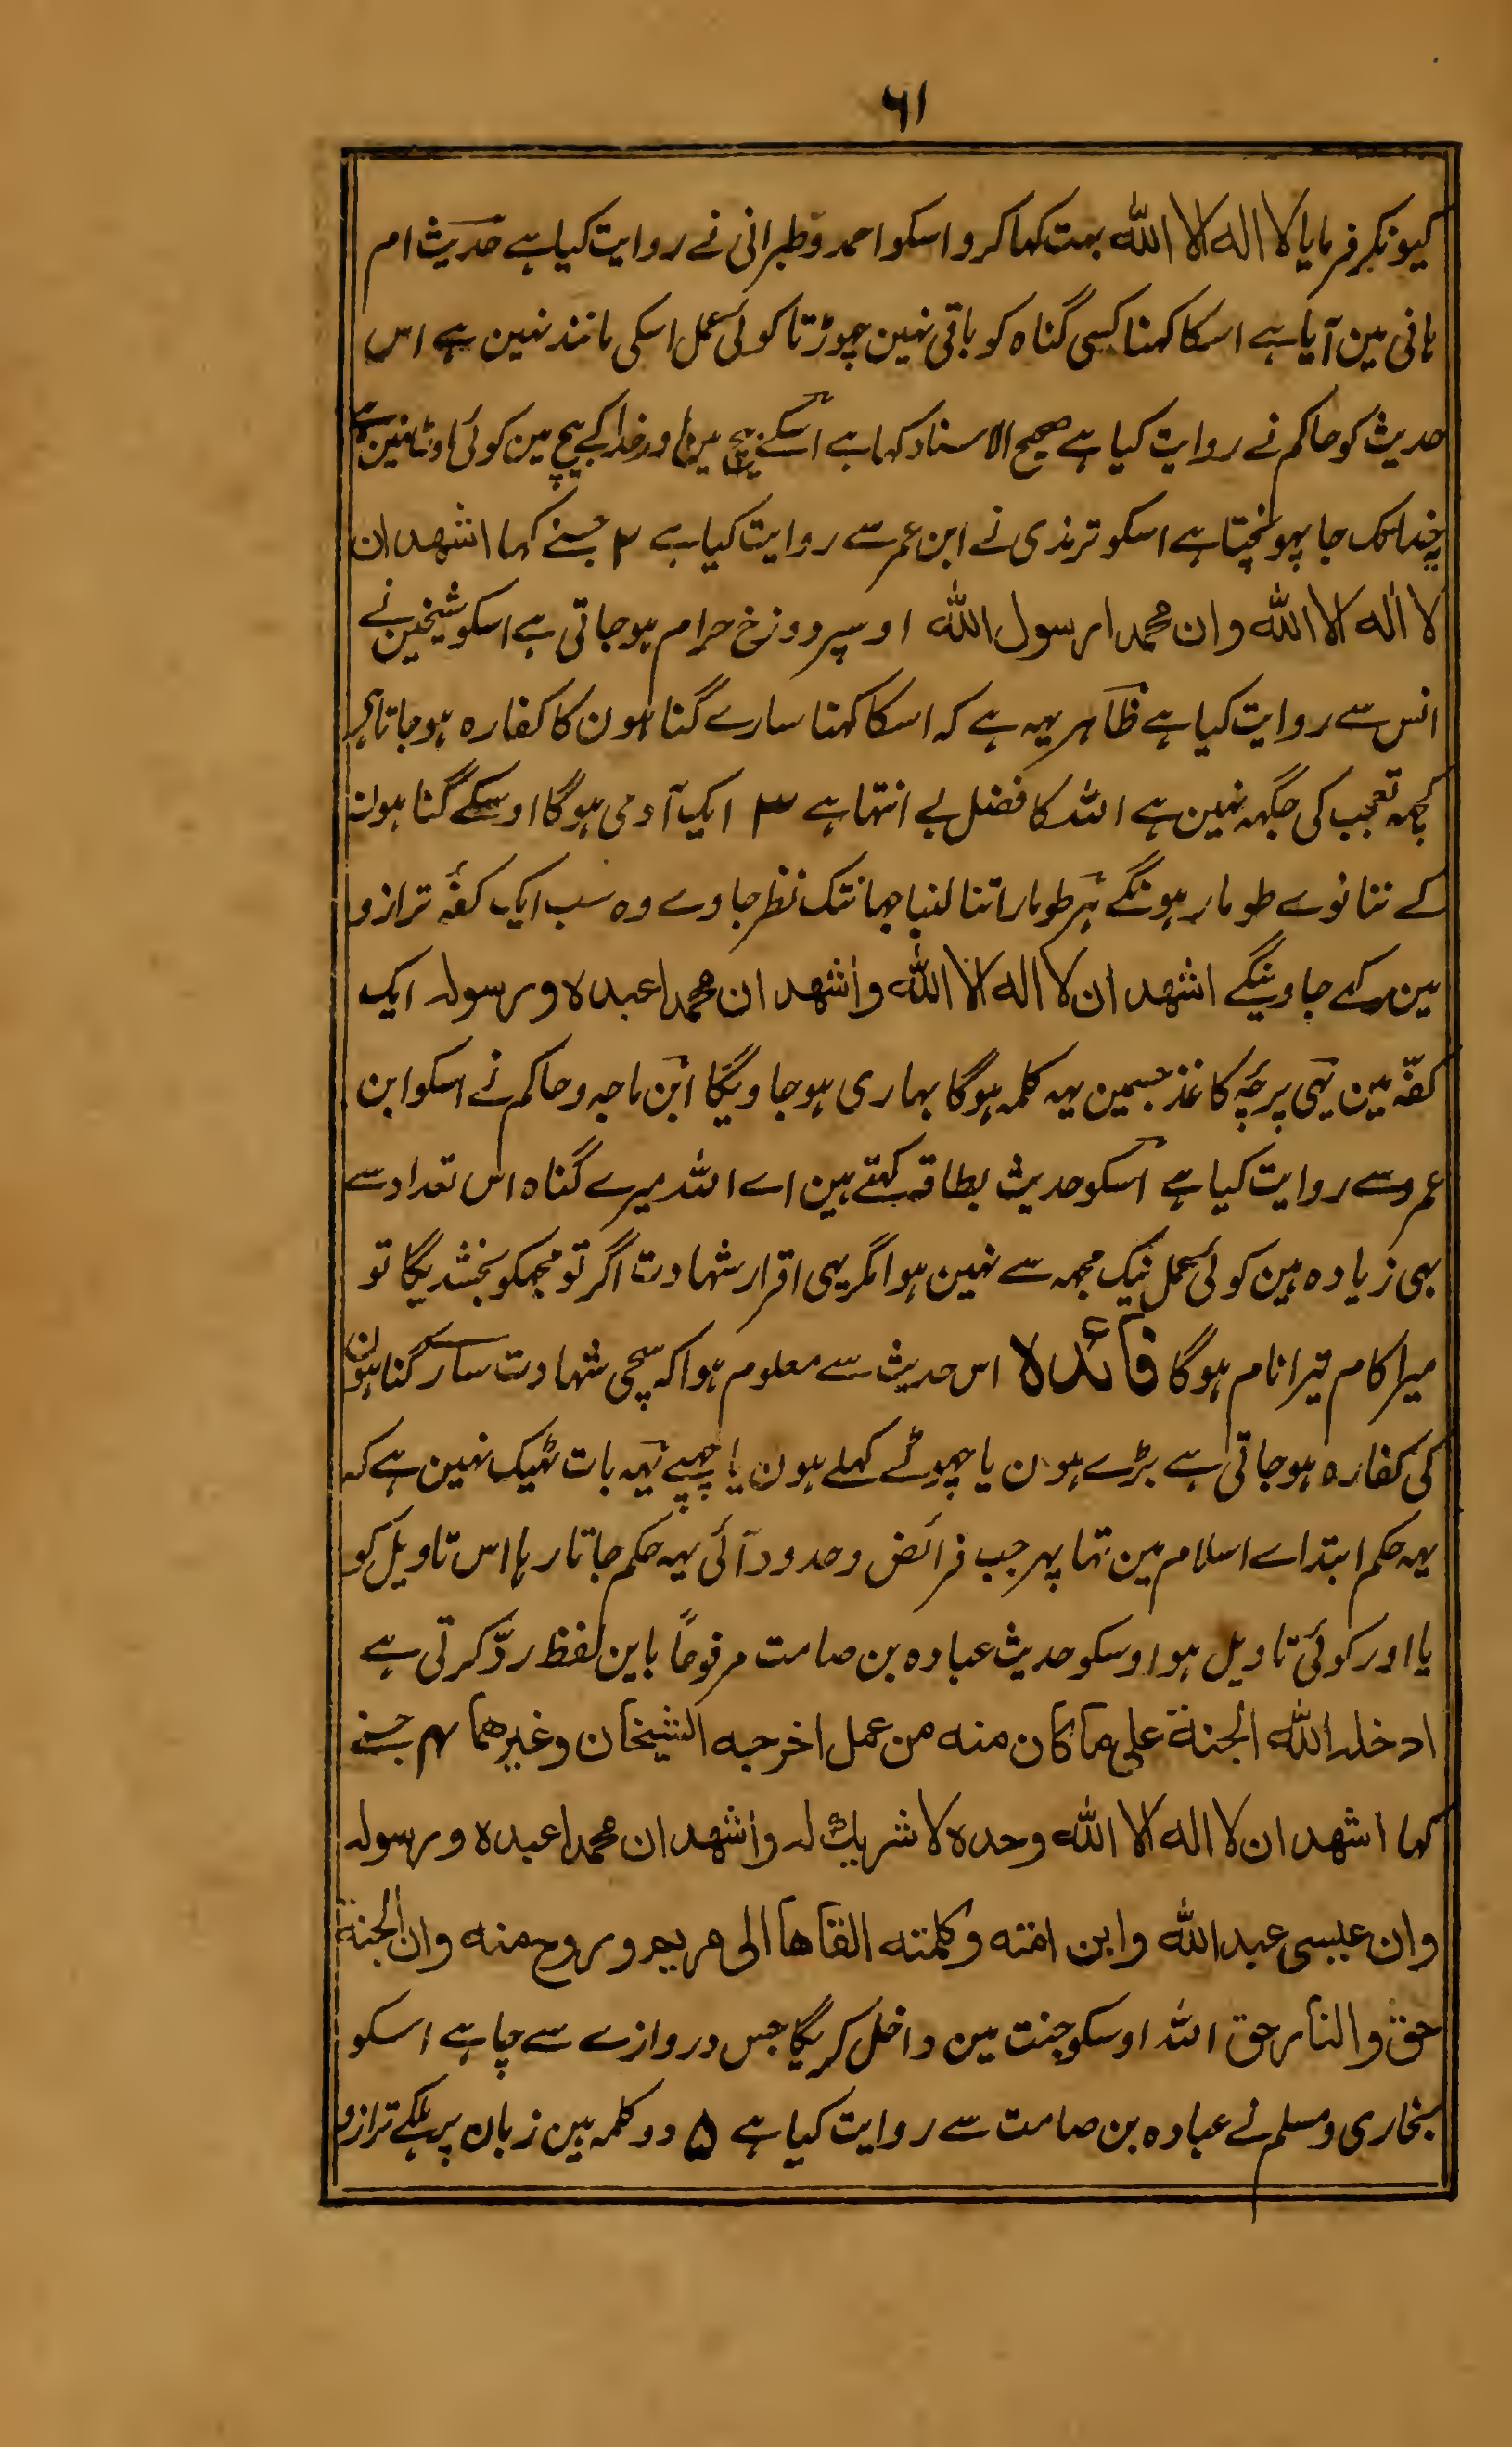 ۶۱
کیونکر فرمایا لا الہ الا اللہ بہت کہا کرو اسکو احمد وطبرانی نے روایت کیا ہے حدیث ام
ہانی مین آیا ہے اسکا کہنا کسی گناہ کو باقی نہین چہوڑتا کوئی عمل اسکی مانند نہین ہے اس
حدیث کو حاکم نے روایت کیا ہے صحیح الاسناد کہا ہے اسکے بیچ مین اور خدا کے بیچ مین کوئی اوٹ نہین ہے
خدا تک جا پہونچتا ہے اسکو ترمذی نے ابن عمر سے روایت کیا ہے ۲ جسنے کہا اشهد ان
لا اله الا الله وان محمدا رسول الله اوسپر دوزخ حرام ہوجاتی ہے اسکو شیخین نے
انس سے روایت کیا ہے ظاہر یہہ ہے کہ اسکا کہنا سارے گناہون کا کفارہ ہوجاتا ہے
کچہہ تعجب کی جگہہ نہین ہے اللہ کا فضل بے انتہا ہے ۳ ایک آدمی ہوگا اوسکے گناہون
کے ننانوے طومار ہونگے ہر طومار اتنا لنبا جہانتک نظر جاوے وہ سب ایک کفۂ ترازو
مین رکہے جاوینگے اشهد ان لا اله الا الله واشهد ان محمدا عبده ورسوله ایک
کفّہ مین یہی پرچۂ کاغذ جسمین یہہ کلمہ ہوگا بہاری ہوجاویگا ابن ماجہ وحاکم نے اسکو ابن
عمرو سے روایت کیا ہے اسکو حدیث بطاقہ کہتے ہین اے اللہ میرے گناہ اس تعداد سے
بہی زیادہ ہین کوئی عمل نیک مجہہ سے نہین ہوا مگر یہی اقرار شہادت اگر تو مجہکو بخشدیگا تو
میرا کام تیرا نام ہوگا فائدہ اس حدیث سے معلوم ہوا کہ سچی شہادت سارے گناہون
کی کفارہ ہوجاتی ہے بڑے ہون یا چہوٹے کہلے ہون یا چہپے یہہ بات ٹہیک نہین ہے کہ
یہہ حکم ابتداے اسلام مین تہا پہر جب فرائض وحدود آئی یہہ حکم جاتا رہا اس تاویل کو
یا اور کوئی تاویل ہو اوسکو حدیث عبادہ بن صامت مرفوعاً باین لفظ ردّ کرتی ہے
ادخله الله الجنة على ما كان منه من عمل اخرجه الشيخان وغيرهما ۴ جسنے
کہا اشهد ان لا اله الا الله وحده لا شريك له واشهد ان محمدا عبده ورسوله
وان عيسى عبد الله وابن امته وكلمته القاها الى مريم وروح منه وان الجنة
حق والنار حق اللہ اوسکو جنت مین داخل کریگا جس دروازے سے چاہے اسکو
بخاری ومسلم نے عبادہ بن صامت سے روایت کیا ہے ۵ دو کلمہ ہین زبان پر ہلکے ترازو